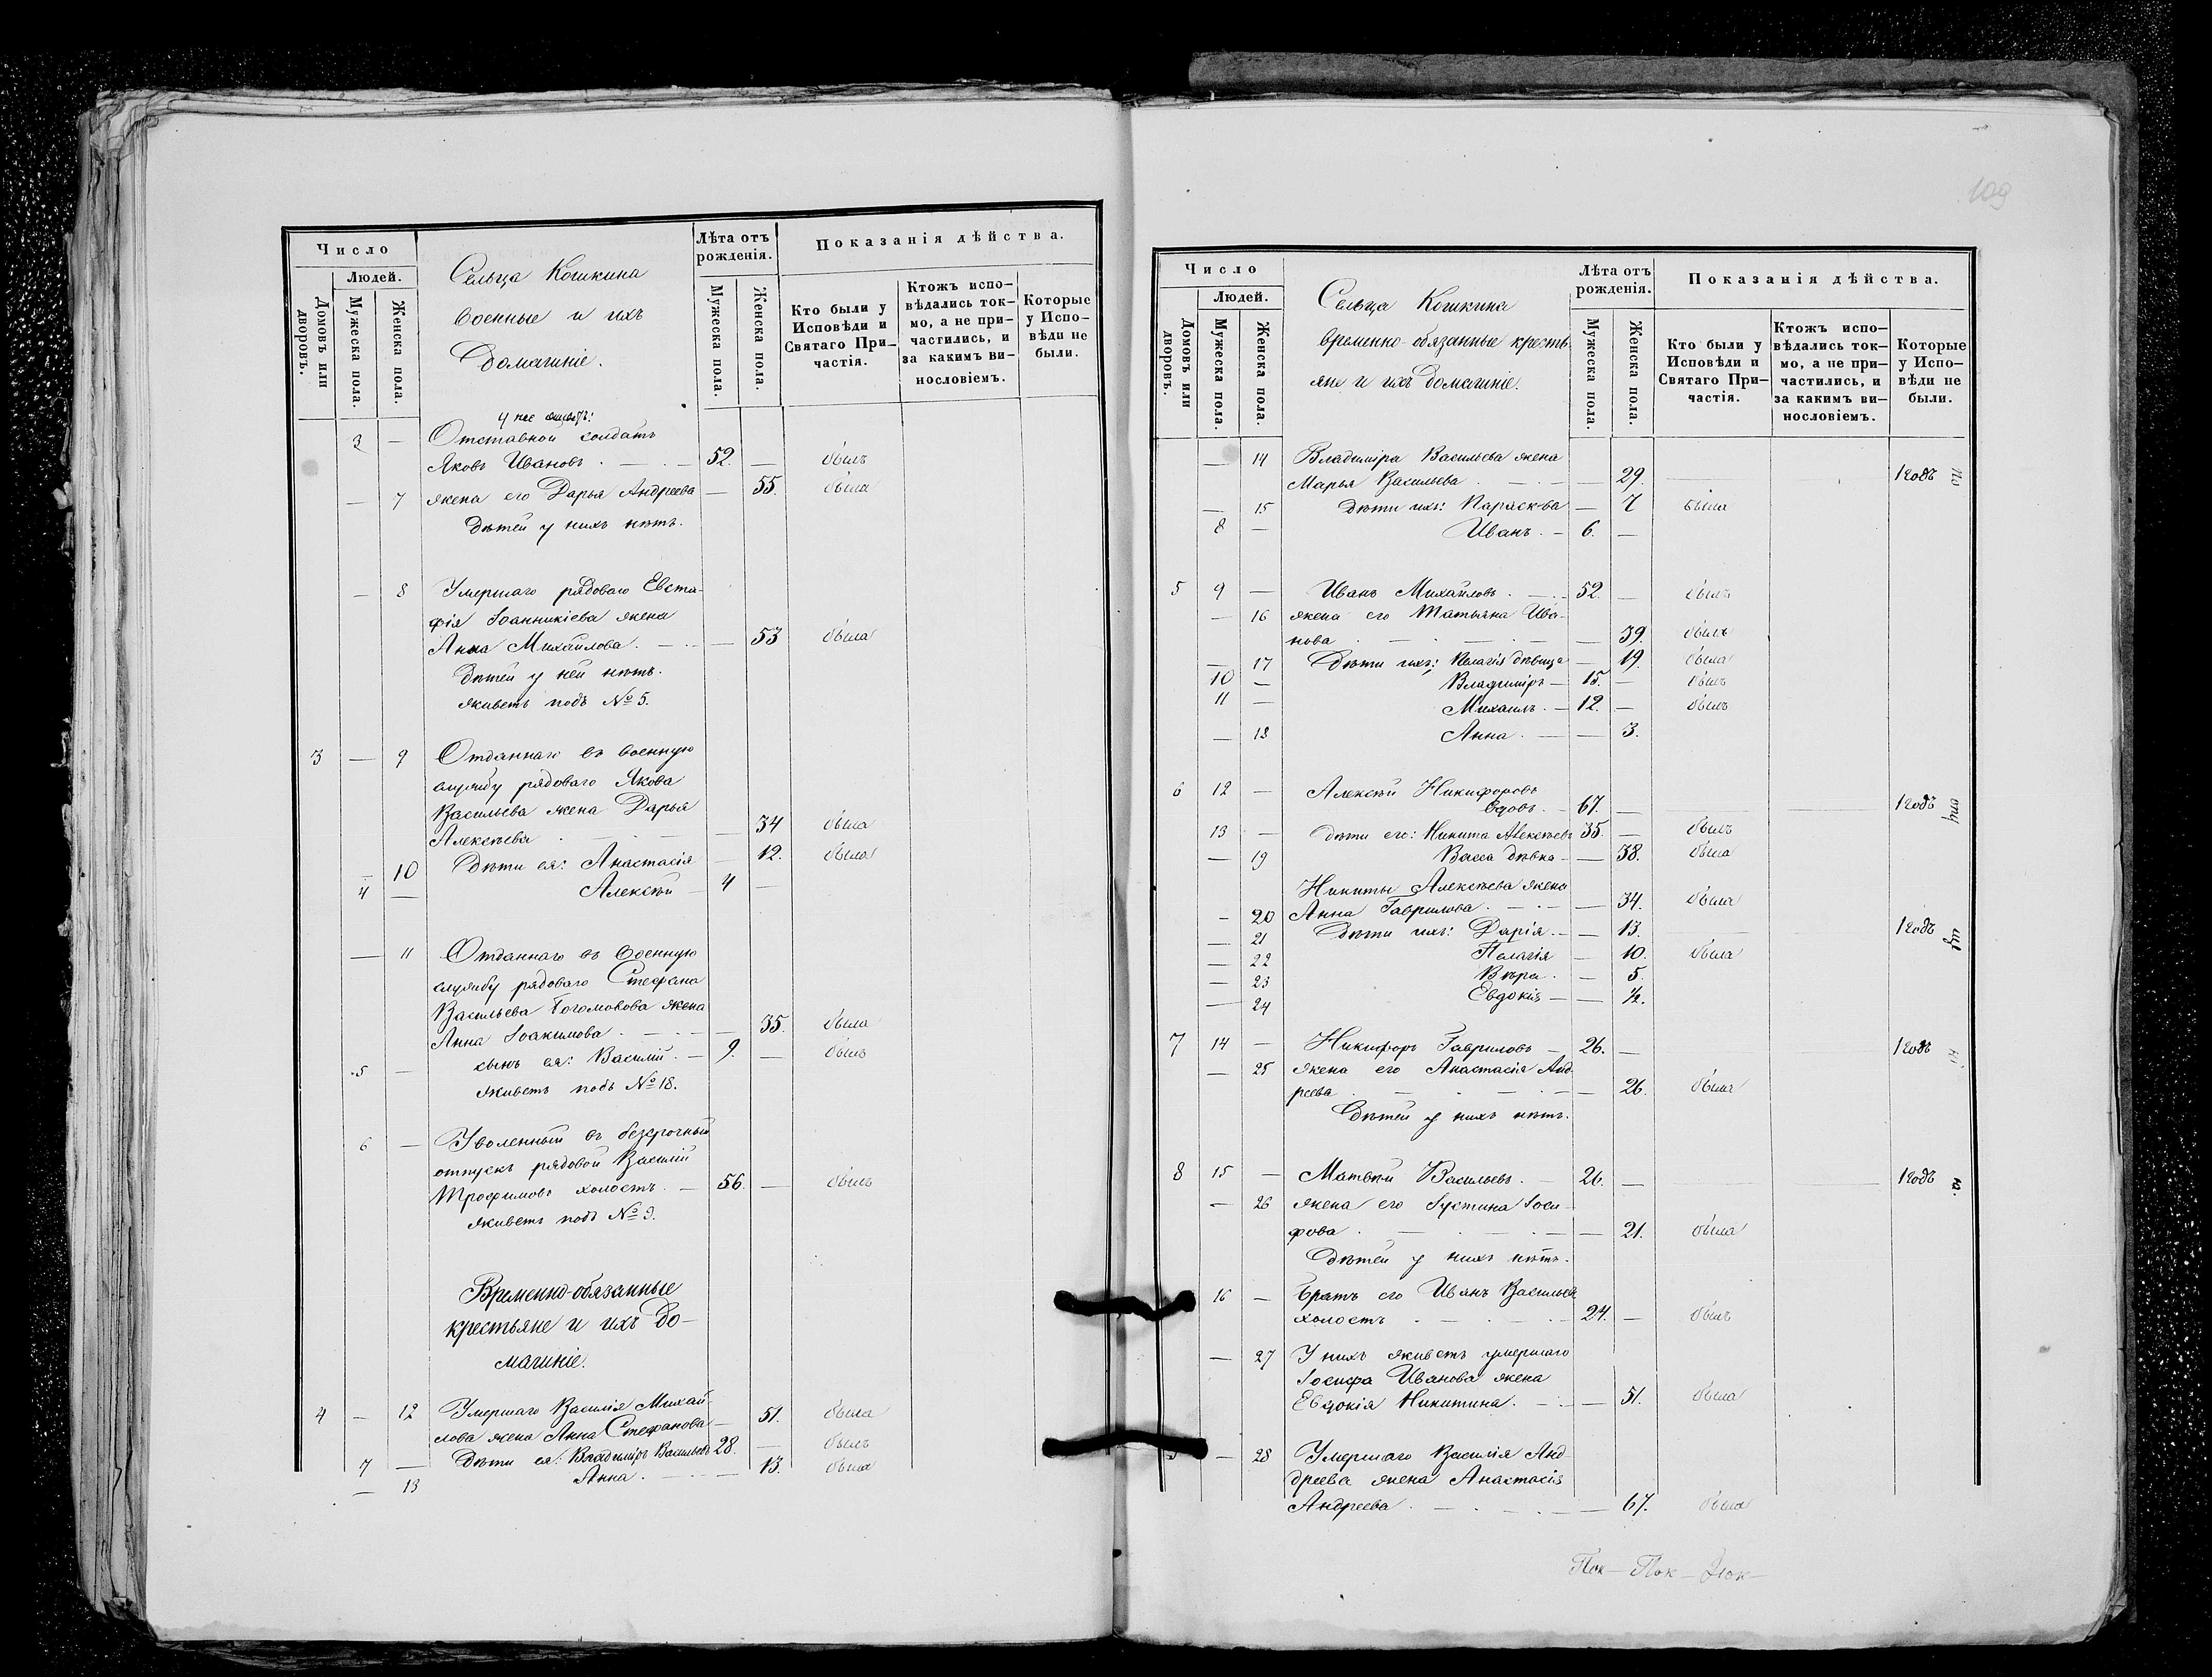 Число
Людей.
Домовъ или дворовъ.
Мужеска пола.
Женска пола.
Сельца Кошкина
военные и ихъ
домашніе.
Лѣта отъ рожденія.
Мужеска пола.
Женска пола.
Показанія дѣйства.
Кто были у Исповѣди и Святаго Причастія.
Ктожъ исповѣдались токмо, а не причастились, и за какимъ винословіемъ.
Которые у Исповѣди не были.
У нее живетъ:
3 — Отставной солдатъ
Яковъ Ивановъ . — . — 52. — былъ
— 7 жена его Дарья Андреева — 55. была
Дѣтей у нихъ нѣтъ.
— 8 Умершаго рядоваго Евста-
фія Іоанникіева жена
Анна Михайлова . — . — — 53 была
Дѣтей у ней нѣтъ.
живетъ подъ № 5.
3 — 9 Отданнаго въ военную
службу рядоваго Якова
Васильева жена Дарья
Алексѣева . — . — — 34 была
— 10 Дѣти ея: Анастасія — 12. была
4 — Алексѣй — 4 —
— 11 Отданнаго въ военную
службу рядоваго Стефана
Васильева Богомолова жена
Анна Іоакимова . — . — — 35. была
5 — сынъ ея: Василій. — 9. — былъ
живетъ подъ № 18.
6 — Уволенный въ безсрочный
отпускъ рядовой Василій
Трофимовъ холостъ. — 56. — былъ
живетъ подъ № 9.
Временно-обязанные
крестьяне и ихъ до-
машніе.
4 — 12 Умершаго Василія Михай-
лова жена Анна Стефанова — 51. была
7 — Дѣти ея: Владиміръ Васильевъ 28. — былъ
— 13 Анна . — — 13. была
109
Число
Людей.
Домовъ или дворовъ.
Мужеска пола.
Женска пола.
Сельца Кошкина
временно-обязанные кресть-
яне и ихъ домашніе.
Лѣта отъ рожденія.
Мужеска пола.
Женска пола.
Показанія дѣйства.
Кто были у Исповѣди и Святаго Причастія.
Ктожъ исповѣдались токмо, а не причастились, и за какимъ винословіемъ.
Которые у Исповѣди не были.
— 14 Владиміра Васильева жена
Марья Васильева . — . — — 29. — 1 годъ по
— 15 Дѣти ихъ: Параскева — 7 была
8 — Иванъ. — 6. —
5 9 — Иванъ Михайловъ . — . — 52. — былъ
— 16 жена его Татьяна Ива-
нова . — . — — 39. была
— 17 Дѣти ихъ: Пелагія дѣвица — 19. была
10 — Владиміръ — 15. — былъ
11 — Михаилъ. — 12. — былъ
— 18 Анна . — — 3.
6 12 — Алексѣй Никифоровъ
вдовъ. — 67. — 1 годъ отц
13 — Дѣти его: Никита Алексѣевъ 35. — былъ
— 19 Васса дѣвка — — 38. была
Никиты Алексѣева жена
— 20 Анна Гаврилова . — . — — 34. была
— 21 Дѣти ихъ: Дарія. — — 13. 1 годъ
— 22 Палагія — 10. была
— 23 Вѣра. — 5.
— 24 Евдокія — — ½.
7 14 — Никифоръ Гавриловъ — 26. — 1 годъ
— 25 жена его Анастасія Анд-
реева . — . — . — — 26. была
Дѣтей у нихъ нѣтъ.
8 15 — Матвѣй Васильевъ . — 26. — 1 годъ
— 26 жена его Іустина Іоси-
фова . — . — . — — 21. была
Дѣтей у нихъ нѣтъ.
16 — Братъ его Иванъ Васильевъ
холостъ . — . — . — 24. — былъ
— 27 У нихъ живетъ умершаго
Іосифа Иванова жена
Евдокія Никитина. — . — — 51. была
— 28 Умершаго Василія Анд-
дреева жена Анастасія
Андреева . — . — . — — 67. была